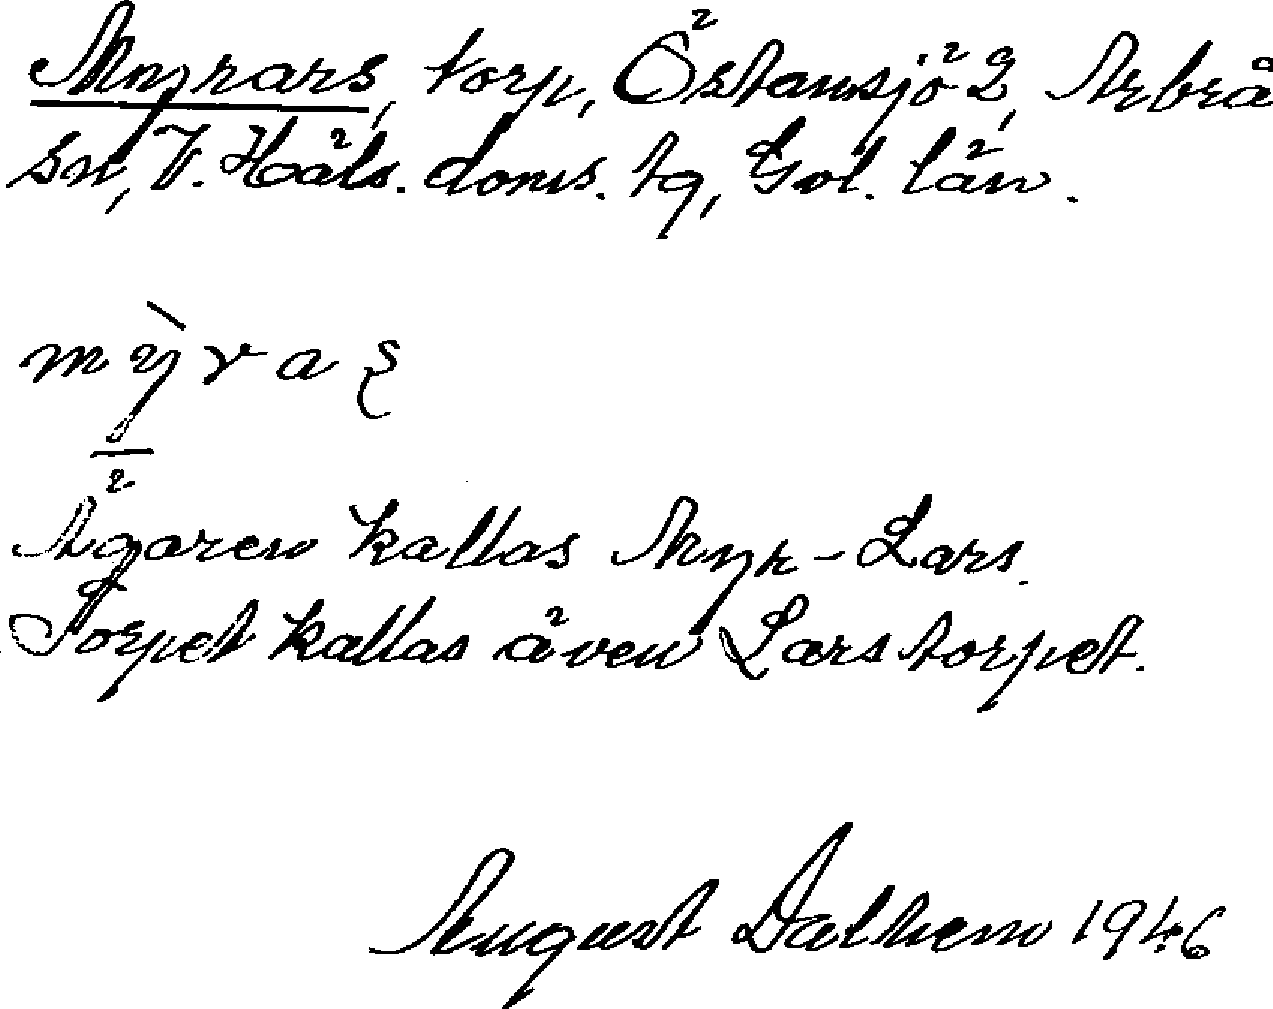 Myrars, torp, Östansjö 2, Arbrå
sn, V. Häls. doms. tg, Gvl. län.
mỳras
Ägaren kallas Myr-Lars.
Torpet kallas även Larstorpet.
August Dalhem 1946